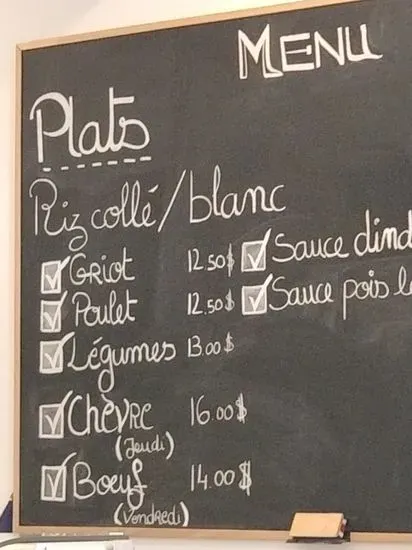 MENU
Plats
Riz collé/blanc
Griot 12.50$
Poulet 12.50$
Légumes 13.00$
Chèvre 16.00$
(Jeudi)
Boeuf 14.00$
(Vendredi)
Sauce dind
Sauce pois